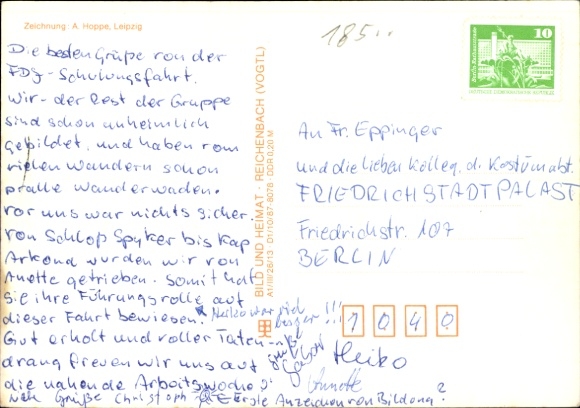 Zeichnung: A. Hoppe, Leipzig
185..
Die besten Grüße von der
FDJ-Schulungsfahrt.
Wir - der Rest der Gruppe
sind schon unheimlich
gebildet, und haben vom
vielen Wandern schon
pralle Wanderwaden.
Vor uns war nichts sicher.
Von Schloß Spyker bis Kap
Arkona wurden wir von
Anette getrieben. Somit hat
sie ihre Führungsrolle auf
dieser Fahrt bewiesen. * Heiko war viel
besser!!!
Gut erholt und voller Taten-
drang freuen wir uns auf
die nahende Arbeitswoche?
Grüße Christoph
Erste Anzeichen von Bildung?
Heiko
Annette
BILD UND HEIMAT · REICHENBACH (VOGTL)
A1/III/26/13 01/10/87-8078 DDR 0,20 M
10
An Fr. Eppinger
und die lieben Kolleg. d. Kostümabt.
FRIEDRICHSTADTPALAST
Friedrichstr. 107
BERLIN
1040